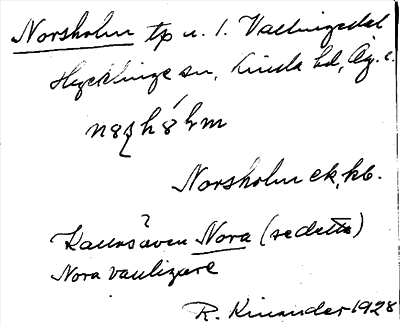 Norsholm tp u. l. Vallingedal
Hycklinge sn, Kinda hd, Ög. l.
Norsholm ek, kb.
Kanns även Nora (se detta)
Nora vanligare
R. Kinander 1928